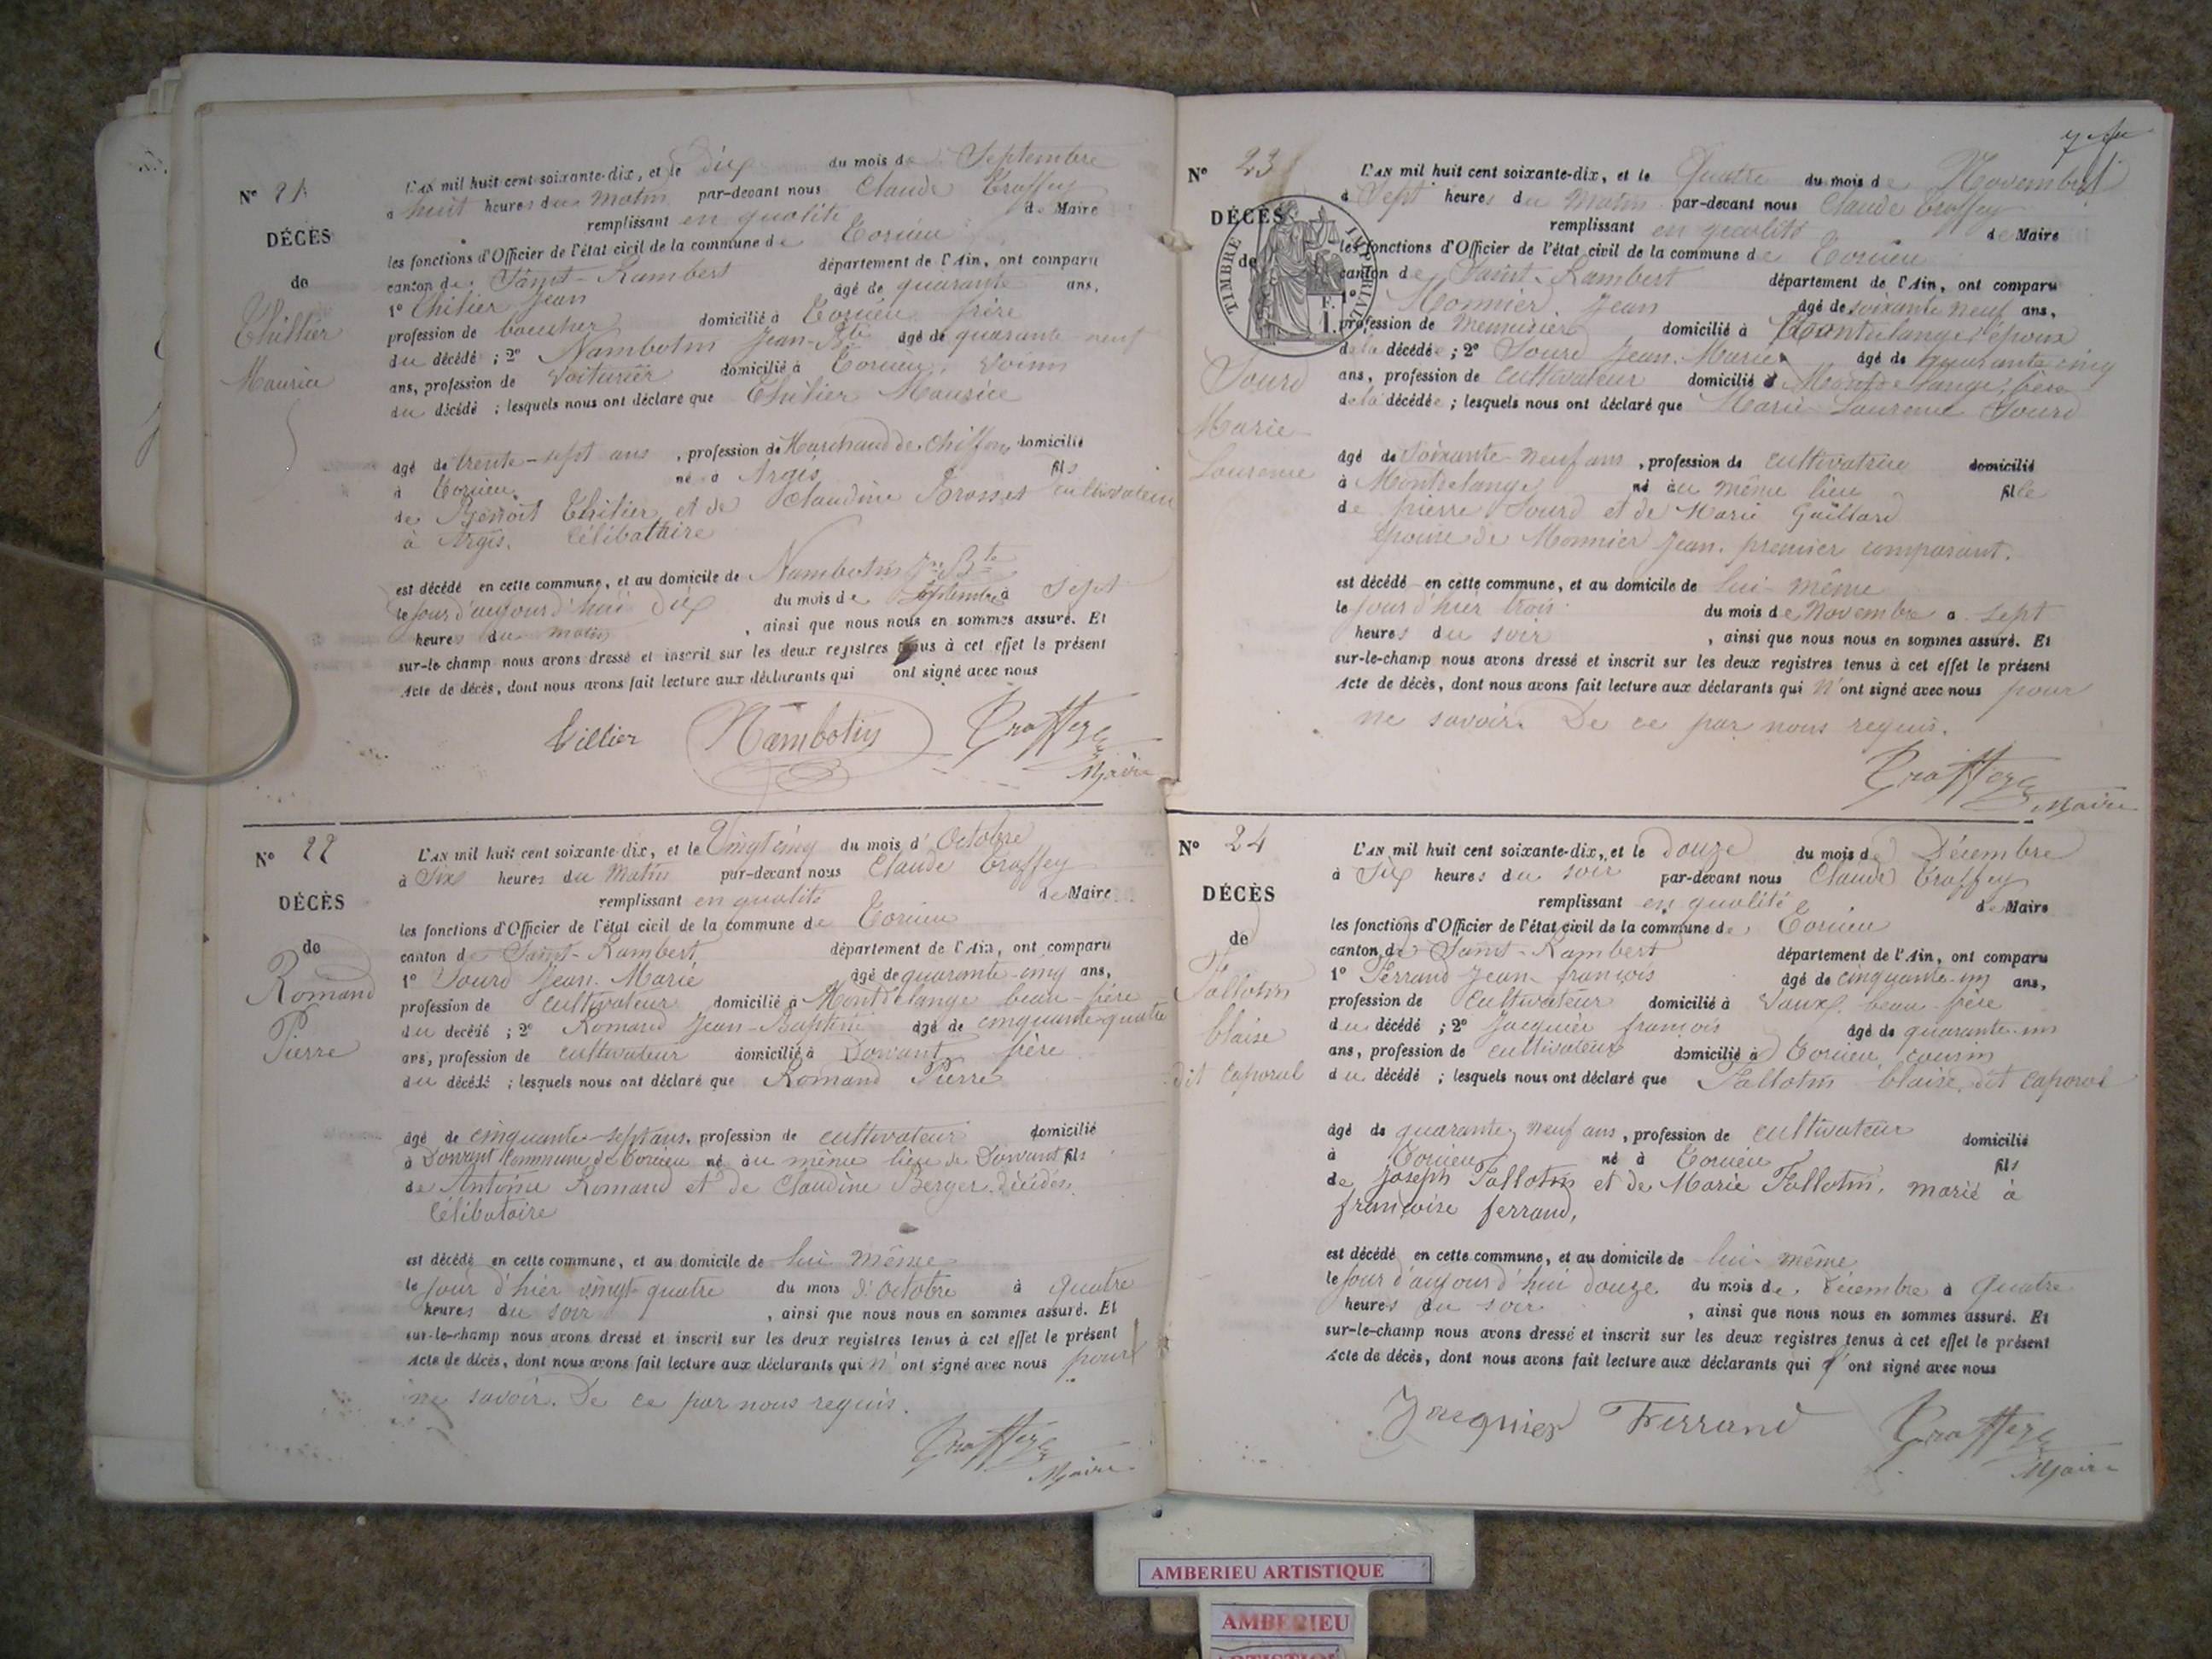 N° 21
DÉCÈS
de
Thillier
Maurice
L'AN mil huit cent soixante-dix, et le dix du mois de Septembre
à huit heures du matin par-devant nous Claude Traffey
remplissant en qualité de Maire
les fonctions d'Officier de l'état civil de la commune de Torcieu
canton de Saint-Rambert département de l'Ain, ont comparu
1° Thilier Jean âgé de quarante ans,
profession de boucher domicilié à Torcieu frère
du décédé ; 2° Nambotin Jean-Bte âgé de quarante neuf
ans, profession de Voiturier domicilié à Torcieu, voisin
du décédé ; lesquels nous ont déclaré que Thilier Maurice
âgé de trente-sept ans, profession de Marchand de chiffons domicilié
à Torcieu né à Argis fils
de Benoit Thilier et de Claudine Brosset cultivateurs
à Argis. Célibataire
est décédé en cette commune, et au domicile de Nambotin Jn Bte
le jour d'aujourd'hui dix du mois de Septembre à sept
heures du matin, ainsi que nous nous en sommes assuré. Et
sur-le-champ nous avons dressé et inscrit sur les deux registres tenus à cet effet le présent
Acte de décès, dont nous avons fait lecture aux déclarants qui ont signé avec nous
Tillier Nambotin Traffey
Maire
N° 22
DÉCÈS
de
Romand
Pierre
L'AN mil huit cent soixante-dix, et le Vingt cinq du mois d'Octobre
à Six heures du Matin par-devant nous Claude Traffey
remplissant en qualité de Maire
les fonctions d'Officier de l'état civil de la commune de Torcieu
canton de Saint-Rambert département de l'Ain, ont comparu
1° Sourd Jean Marie âgé de quarante-cinq ans,
profession de cultivateur domicilié à Montdelange beau-frère
du décédé ; 2° Romand Jean-Baptiste âgé de cinquante quatre
ans, profession de cultivateur domicilié à Dorvant frère
du décédé ; lesquels nous ont déclaré que Romand Pierre
âgé de cinquante-sept ans, profession de cultivateur domicilié
à Dorvant Commune de Torcieu né au même lieu de Dorvant fils
de Antoine Romand et de Claudine Berger décédés.
Célibataire
est décédé en cette commune, et au domicile de lui même
le jour d'hier vingt-quatre du mois d'Octobre à quatre
heures du soir, ainsi que nous nous en sommes assuré. Et
sur-le-champ nous avons dressé et inscrit sur les deux registres tenus à cet effet le présent
Acte de décès, dont nous avons fait lecture aux déclarants qui n'ont signé avec nous pour
ne savoir. De ce par nous requis.
Traffey
Maire
N° 23
DÉCÈS
de
TIMBRE IMPERIAL
Sourd
Marie
Laurence
L'AN mil huit cent soixante-dix, et le Quatre du mois de Novembre
à Sept heures du Matin par-devant nous Claude Traffey
remplissant en qualité de Maire
les fonctions d'Officier de l'état civil de la commune de Torcieu
canton de Saint-Rambert département de l'Ain, ont comparu
1° Monnier Jean âgé de soixante neuf ans,
profession de Menuisier domicilié à Montdelange, époux
de la décédée ; 2° Sourd Jean-Marie âgé de quarante cinq
ans, profession de cultivateur domicilié à Montdelange, frère
de la décédée ; lesquels nous ont déclaré que Marie-Laurence Sourd
âgé de Soixante-neuf ans, profession de cultivatrice domicilié
à Montdelange né au même lieu fille
de pierre Sourd et de Marie Gaillard
Epouse de Monnier Jean. premier comparant.
est décédé en cette commune, et au domicile de lui-même
le jour d'hier trois du mois de Novembre à sept
heures du soir, ainsi que nous nous en sommes assuré. Et
sur-le-champ nous avons dressé et inscrit sur les deux registres tenus à cet effet le présent
Acte de décès, dont nous avons fait lecture aux déclarants qui n'ont signé avec nous pour
ne savoir. De ce par nous requis.
Traffey
Maire
N° 24
DÉCÈS
de
Tallotin
blaise
dit caporal
L'AN mil huit cent soixante-dix, et le douze du mois de Décembre
à Six heures du soir par-devant nous Claude Traffey
remplissant en qualité de Maire
les fonctions d'Officier de l'état civil de la commune de Torcieu
canton de Saint-Rambert département de l'Ain, ont comparu
1° Ferrand Jean-françois âgé de cinquante-un ans,
profession de cultivateur domicilié à Vaux, beau-frère
du décédé ; 2° Jacquier françois âgé de quarante-un
ans, profession de cultivateur domicilié à Torcieu, cousin
du décédé ; lesquels nous ont déclaré que Tallotin blaise, dit caporal
âgé de quarante-neuf ans, profession de cultivateur domicilié
à Torcieu né à Torcieu fils
de Joseph Tallotin et de Marie Tallotin, marié à
françoise ferrand,
est décédé en cette commune, et au domicile de lui-même
le jour d'aujourd'hui douze du mois de Décembre à quatre
heures du soir, ainsi que nous nous en sommes assuré. Et
sur-le-champ nous avons dressé et inscrit sur les deux registres tenus à cet effet le présent
Acte de décès, dont nous avons fait lecture aux déclarants qui ont signé avec nous
Jacquier Ferrand Traffey
Maire
AMBERIEU ARTISTIQUE
AMBERIEU
ARTISTIQUE